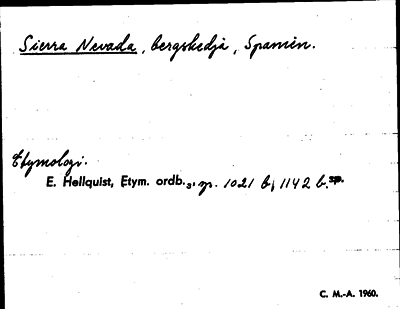 Sierra Nevada, bergskedja, Spanien.
Etymologi.
E. Hellquist, Etym. ordb.₃, sp. 1021 b; 1142 b. sp.
C. M.-A. 1960.